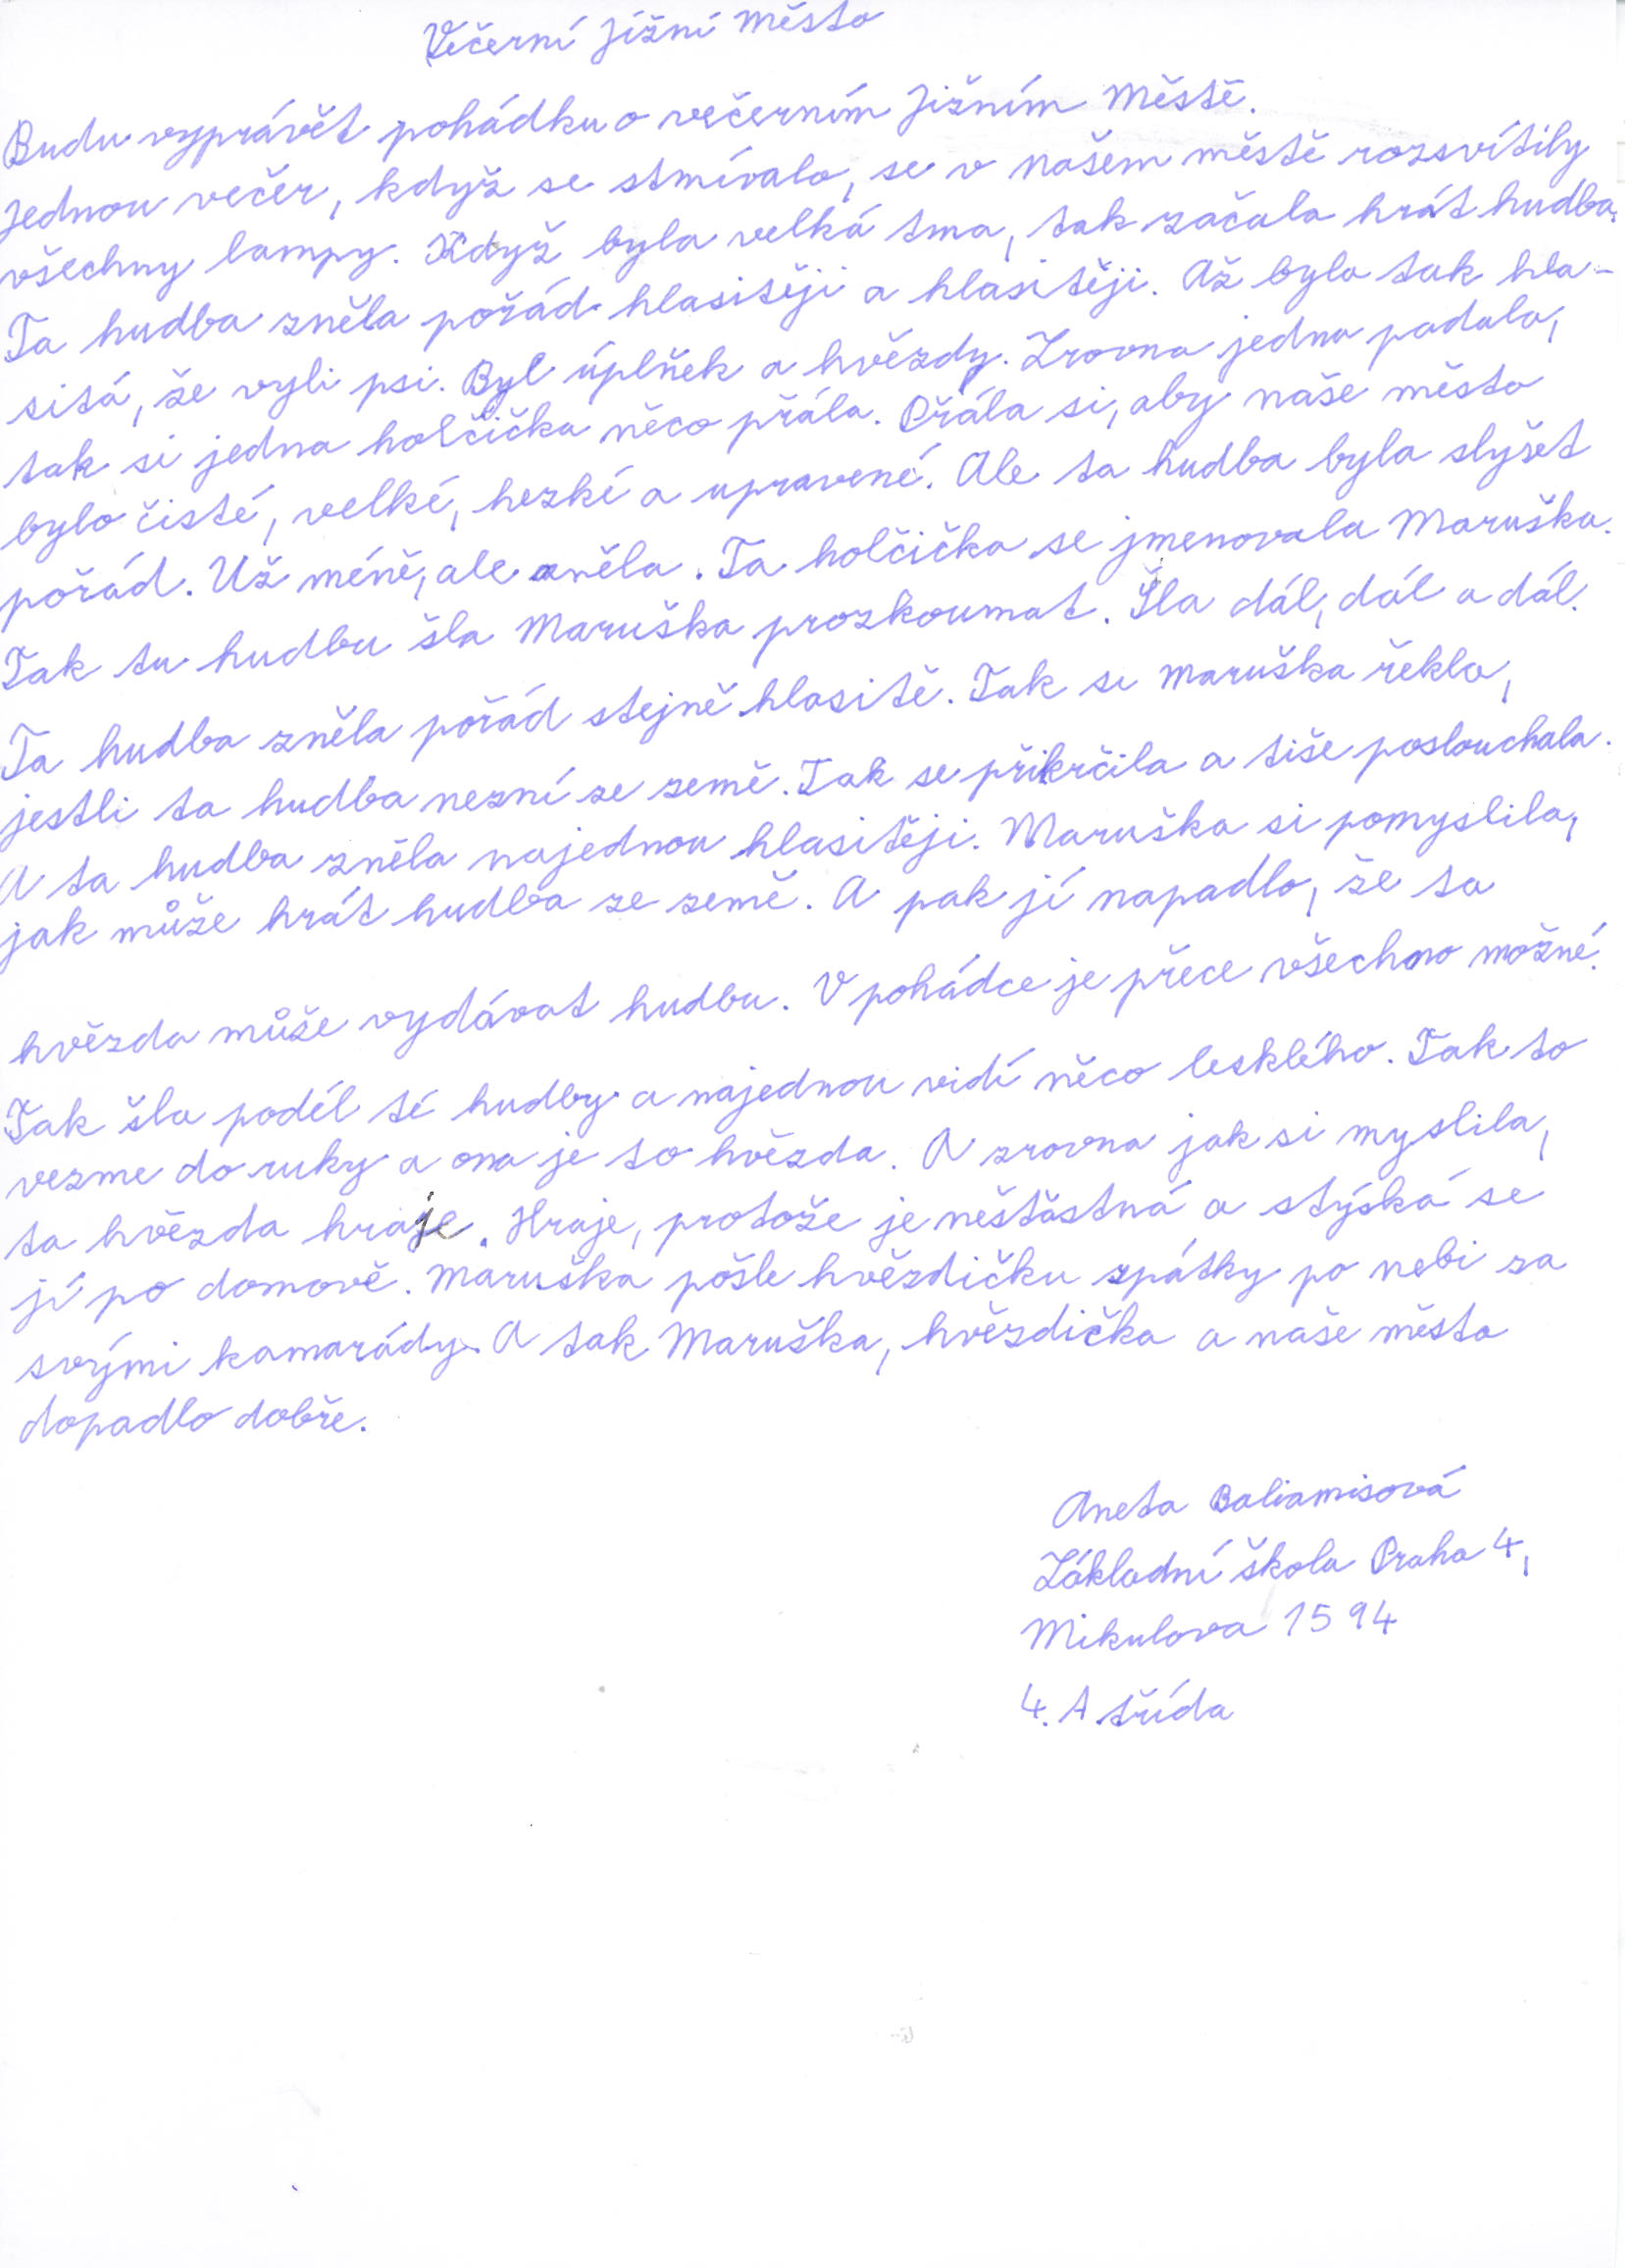 Večerní Jižní Město
Budu vyprávět pohádku o večerním Jižním Městě.
Jednou večer, když se stmívalo, se v našem městě rozsvítily
všechny lampy. Když byla velká tma, tak začala hrát hudba.
Ta hudba zněla pořád hlasitěji a hlasitěji. Až byla tak hla-
sitá, že vyli psi. Byl úplněk a hvězdy. Zrovna jedna padala,
tak si jedna holčička něco přála. Přála si, aby naše město
bylo čisté, velké, hezké a upravené. Ale ta hudba byla slyšet
pořád. Už méně, ale zněla. Ta holčička se jmenovala Maruška.
Tak tu hudbu šla Maruška prozkoumat. Šla dál, dál a dál.
Ta hudba zněla pořád stejně hlasitě. Tak si Maruška řekla,
jestli ta hudba nezní ze země. Tak se přikrčila a tiše poslouchala.
A ta hudba zněla najednou hlasitěji. Maruška si pomyslila,
jak může hrát hudba ze země. A pak jí napadlo, že ta
hvězda může vydávat hudbu. V pohádce je přece všechno možné.
Tak šla podél té hudby a najednou vidí něco lesklého. Tak to
vezme do ruky a ona je to hvězda. A zrovna jak si myslila,
ta hvězda hraje. Hraje, protože je nešťastná a stýská se
jí po domově. Maruška pošle hvězdičku zpátky po nebi za
svými kamarády. A tak Maruška, hvězdička a naše město
dopadlo dobře.
Aneta Baliamisová
Základní škola Praha 4,
Mikulova 1594
4. A třída